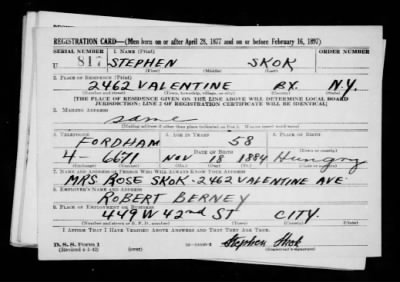 REGISTRATION CARD—(Men born on or after April 28, 1877 and on or before February 16, 1897)
SERIAL NUMBER 1. NAME (Print) ORDER NUMBER
U 817 STEPHEN SKOK
2. PLACE OF RESIDENCE (Print)
2462 VALENTINE BX. N.Y.
(Number and street) (Town, township, village, or city) (County) (State)
[THE PLACE OF RESIDENCE GIVEN ON THE LINE ABOVE WILL DETERMINE LOCAL BOARD
JURISDICTION; LINE 2 OF REGISTRATION CERTIFICATE WILL BE IDENTICAL]
3. MAILING ADDRESS
same
(Mailing address if other than place indicated on line 2. If same insert word same)
4. TELEPHONE 5. AGE IN YEARS 6. PLACE OF BIRTH
FORDHAM 58
DATE OF BIRTH (Town or county)
4- 6671 NOV 18 1884 Hungry
7. NAME AND ADDRESS OF PERSON WHO WILL ALWAYS KNOW YOUR ADDRESS
MRS ROSE SKOK-2462 VALENTINE AVE
8. EMPLOYER'S NAME AND ADDRESS
ROBERT BERNEY
9. PLACE OF EMPLOYMENT OR BUSINESS
449 W 42nd ST CITY.
(Number and street or R. F. D. number) (Town) (County) (State)
I AFFIRM THAT I HAVE VERIFIED ABOVE ANSWERS AND THAT THEY ARE TRUE.
D. S. S. Form 1
(Revised 4-1-42) (over) Stephen Skok